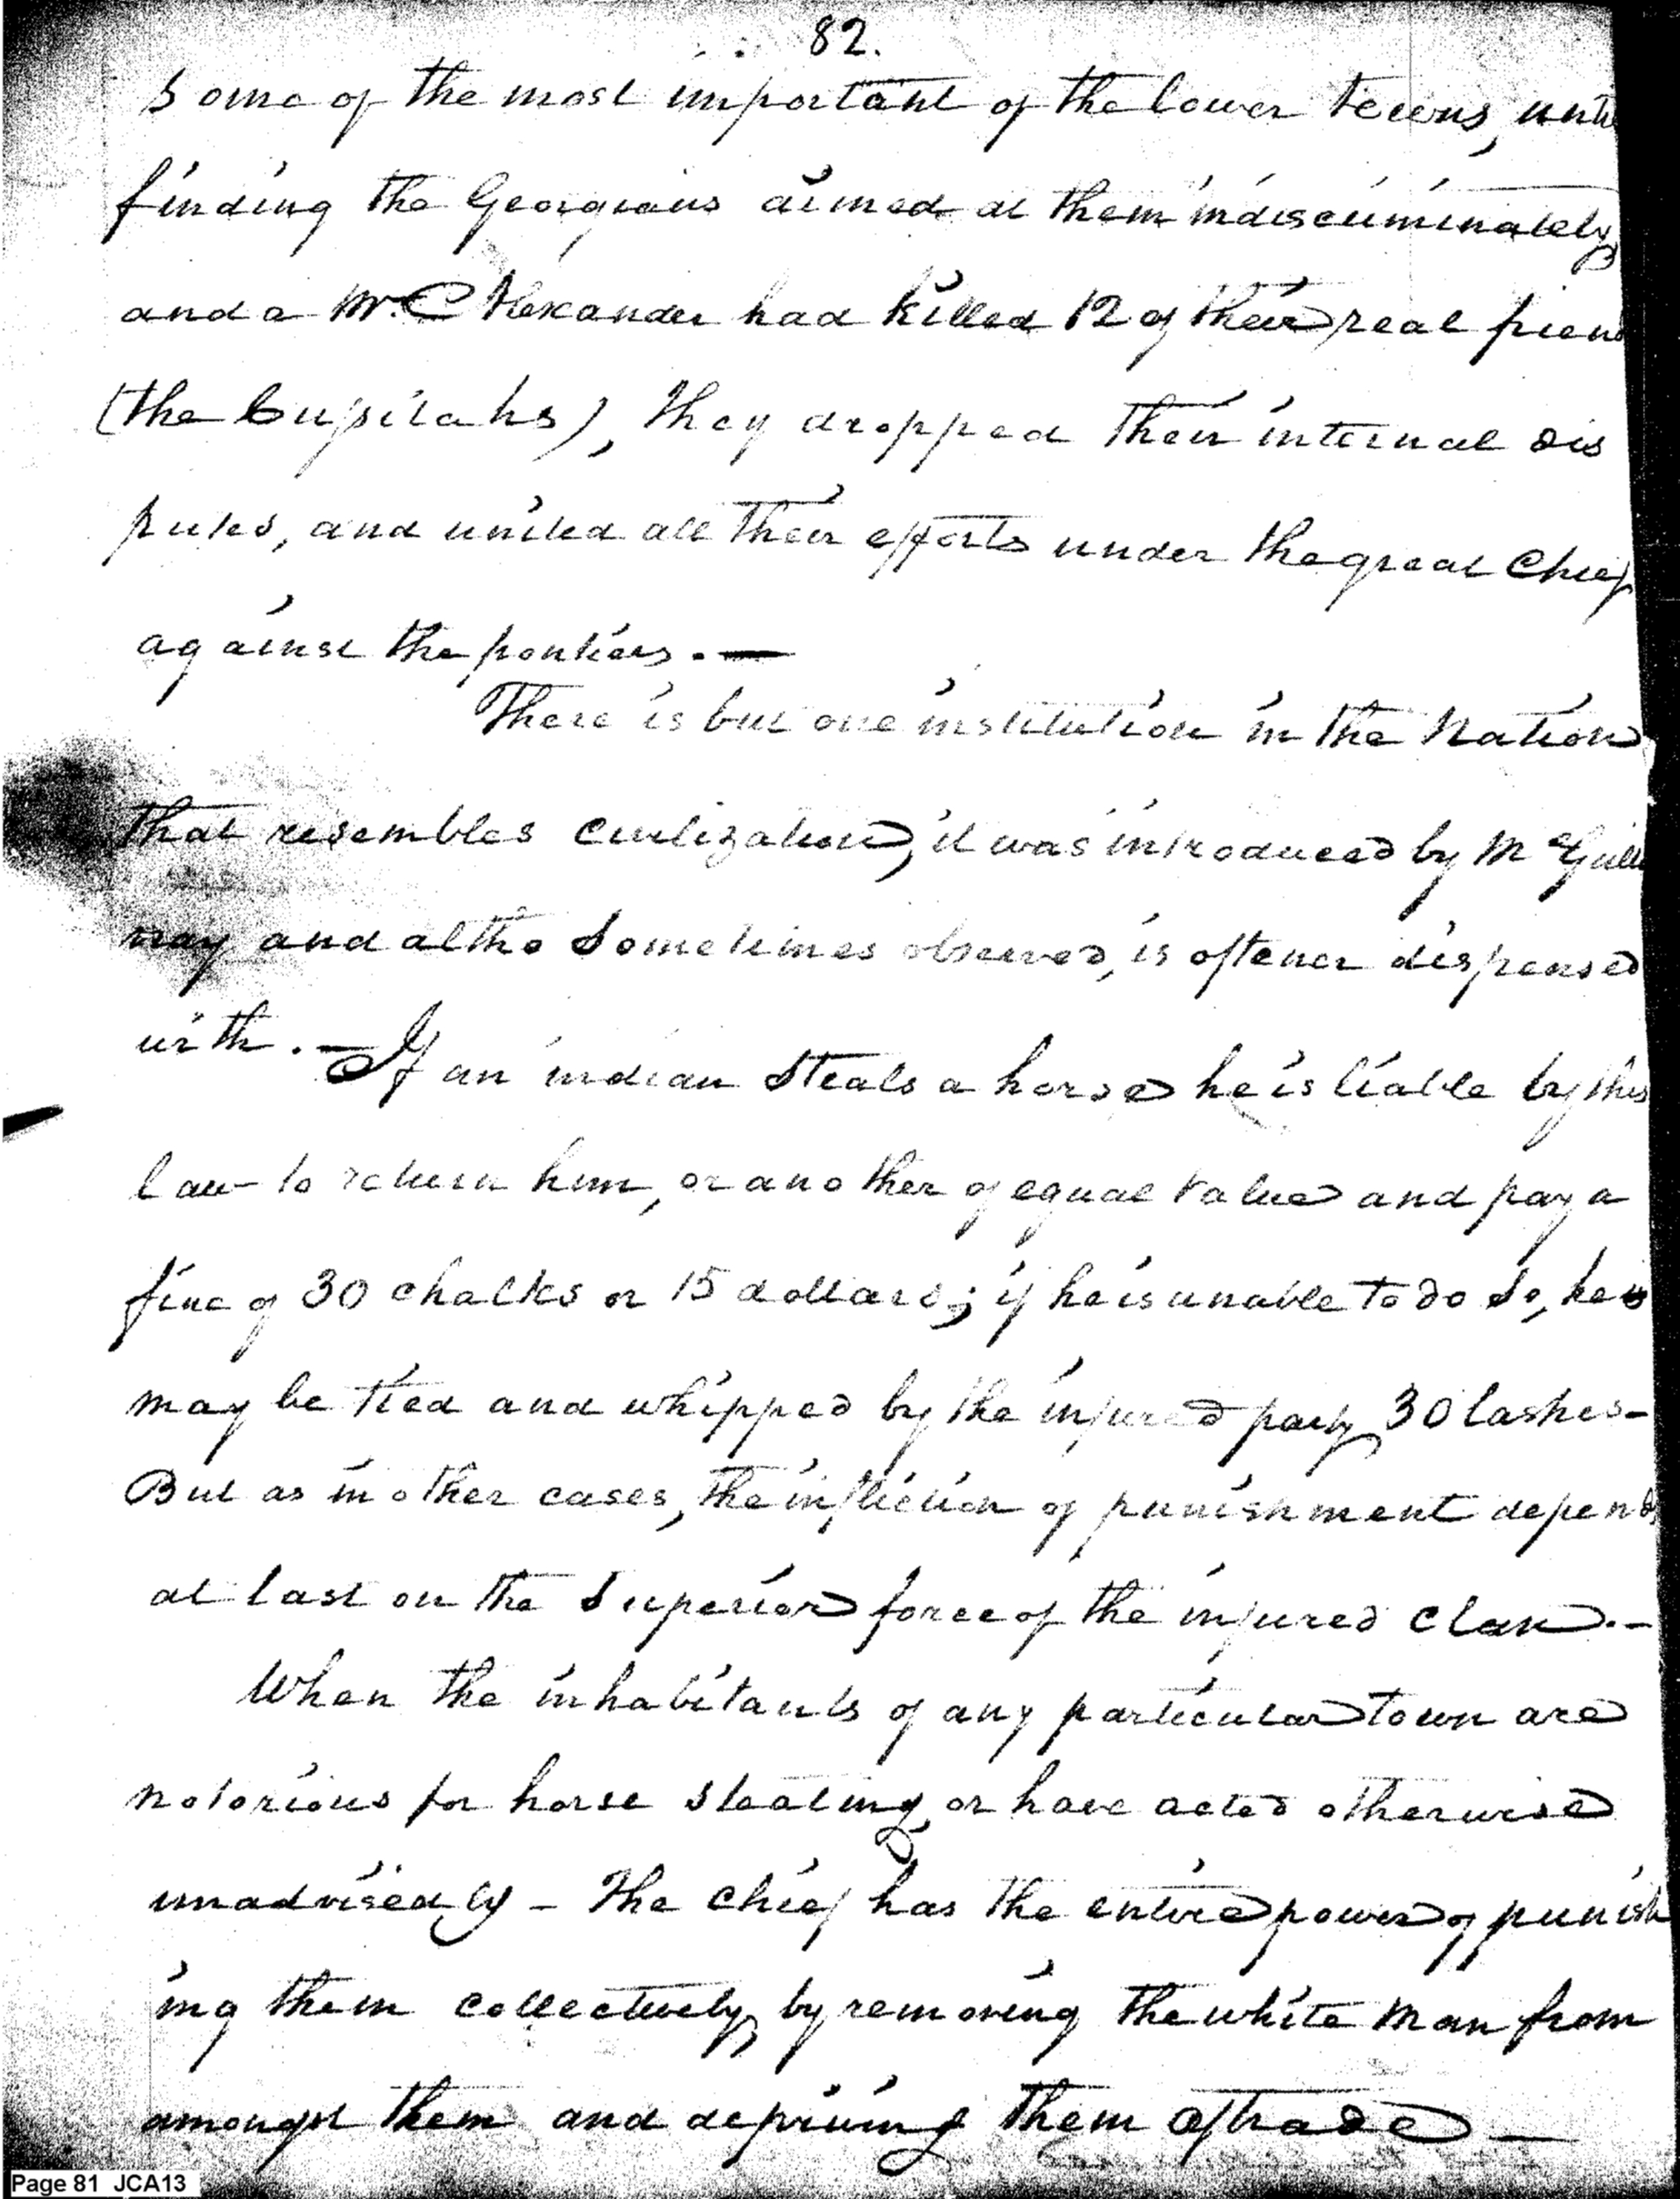 82.
Some of the most important of the lower towns, unti
finding the Georgians aimed at them indiscriminately
and a Mr. Alexander had killed 12 of their real frien
(the Cusitahs), they dropped their internal dis
putes, and united all their efforts under the great Chief
against the frontiers. —
There is but one institution in the Nation
that resembles civilization, it was introduced by McGilli
vray and altho sometimes observed, is oftener dispensed
with. — If an indian steals a horse he is liable by this
law to return him, or another of equal value and pay a
fine of 30 chalks or 15 dollars; if he is unable to do so, he
may be tied and whipped by the injured party 30 lashes -
But as in other cases, the infliction of punishment depends
at last on the superior force of the injured clan. -
When the inhabitants of any particular town are
notorious for horse stealing, or have acted otherwise
unadvisedly - The chief has the entire power of punish
ing them collectively, by removing the white man from
amongst them and depriving them of trade —
Page 81 JCA13